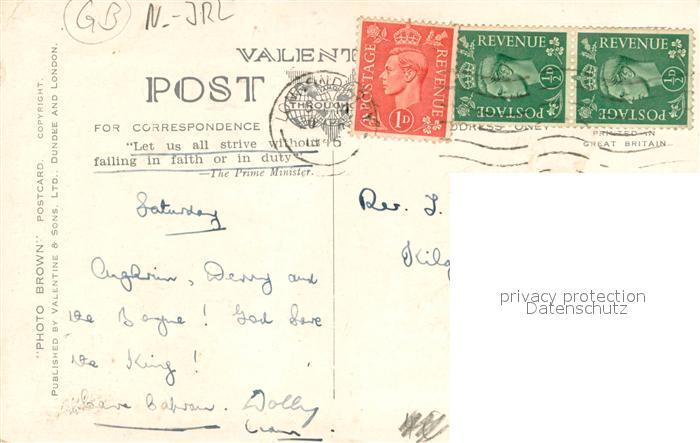 GB N.-IRL
VALENT
POST
FOR CORRESPONDENCE
"Let us all strive without
failing in faith or in duty"
—The Prime Minister.
POSTAGE REVENUE 1D
REVENUE ½D POSTAGE
REVENUE ½D POSTAGE
THROUGH
ADDRESS ONLY
PRINTED IN
GREAT BRITAIN
"PHOTO BROWN" POSTCARD. COPYRIGHT.
PUBLISHED BY VALENTINE & SONS, LTD., DUNDEE AND LONDON.
Saturday
Aughrim, Derry and
the Boyne! God Save
the King!
Dolly
Rev. J.
privacy protection
Datenschutz